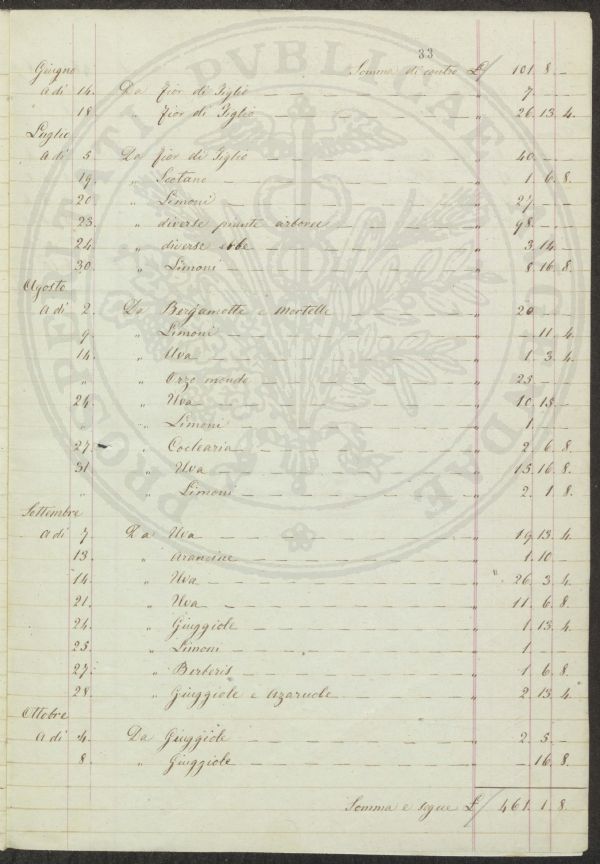 33
Giugno Somma di contro £/ 101. 8. –
a di 14. Da fior di Giglio — " 7. — –
18. " fior di Giglio — " 26. 13. 4.
Luglio
a di 5. Da fior di Giglio — " 40. — –
19. " Scotano — " 1. 6. 8.
20. " Limoni — " 27. — –
23. " diverse piante arboree — " 98. — –
24. " diverse erbe — " 3. 14. –
30. " Limoni — " 8. 16. 8.
Agosto
a di 2. Da Bergamotte e Mortelle — " 20. — –
9. " Limoni — " – 11. 4.
14. " Uva — " 1. 3. 4.
" " Orzo mondo — " 25. — –
24. " Uva — " 10. 15. –
" " Limoni — " 1. — –
27. " Coclearia — " 2. 6. 8.
31 " Uva — " 15. 16. 8.
" " Limoni — " 2. 1. 8.
Settembre
a di 7. Da Uva — " 19. 13. 4.
13. " Arancine — " 1. 10. –
14. " Uva — " 26. 3. 4.
21. " Uva — " 11. 6. 8.
24. " Giuggiole — " 1. 13. 4.
25. " Limoni — " 1. — –
27. " Berberis — " 1. 6. 8.
28 " Giuggiole e Azaruole — " 2. 13. 4.
Ottobre
a di 4. Da Giuggiole — " 2. 5. –
8. " Giuggiole — " – 16. 8.
Somma e segue £/ 461. 1. 8.
PROSPERITATI PVBLICAE AVGENDAE